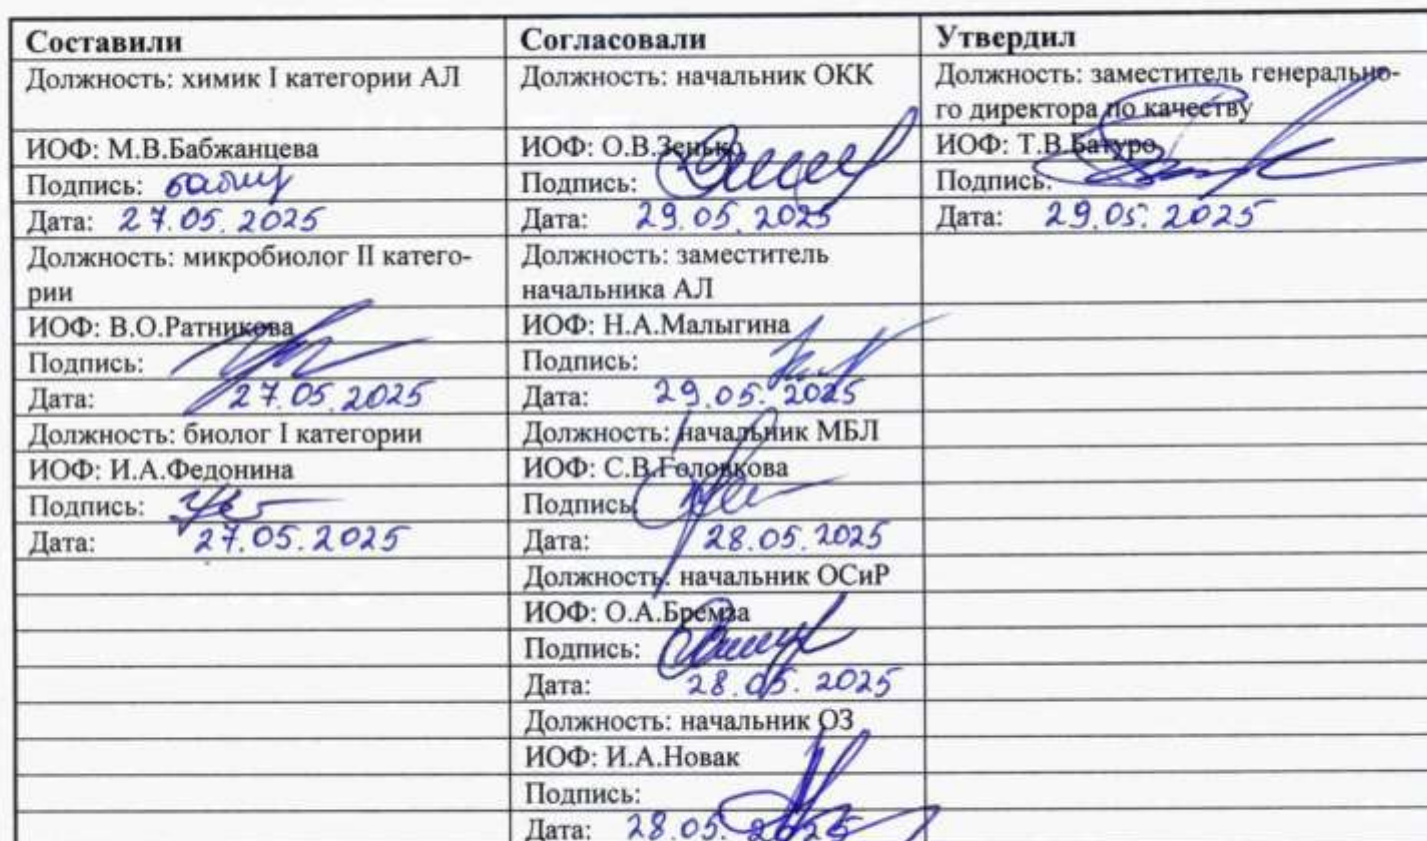 Составили Согласовали Утвердил
Должность: химик I категории АЛ Должность: начальник ОКК Должность: заместитель генерально-
го директора по качеству
ИОФ: М.В.Бабжанцева ИОФ: О.В.Зенько ИОФ: Т.В.Батуро
Подпись: Подпись: Подпись:
Дата: 27.05.2025 Дата: 29.05.2025 Дата: 29.05.2025
Должность: микробиолог II катего- Должность: заместитель
рии начальника АЛ
ИОФ: В.О.Ратникова ИОФ: Н.А.Малыгина
Подпись: Подпись:
Дата: 27.05.2025 Дата: 29.05.2025
Должность: биолог I категории Должность: начальник МБЛ
ИОФ: И.А.Федонина ИОФ: С.В.Головкова
Подпись: Подпись:
Дата: 27.05.2025 Дата: 28.05.2025
Должность: начальник ОСиР
ИОФ: О.А.Бремза
Подпись:
Дата: 28.05.2025
Должность: начальник ОЗ
ИОФ: И.А.Новак
Подпись:
Дата: 28.05.2025